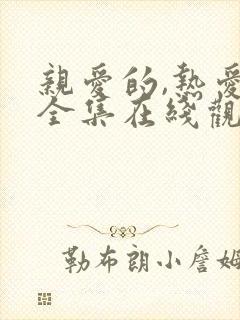 親愛的,熱愛
全集在綫觀
勒布朗小詹姆